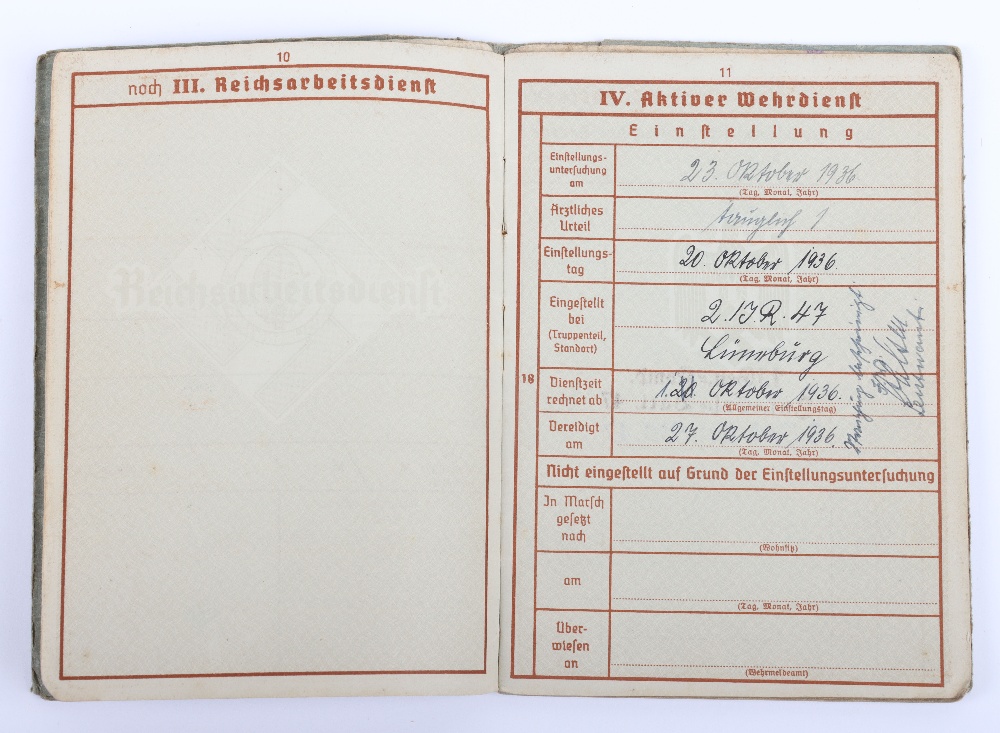 10
noch III. Reichsarbeitsdienst
Reichsarbeitsdienst
11
IV. Aktiver Wehrdienst
Einstellung
18
Einstellungs-
untersuchung
am
23. Oktober 1936
(Tag, Monat, Jahr)
Ärztliches
Urteil
tauglich 1
Einstellungs-
tag
20. Oktober 1936.
(Tag, Monat, Jahr)
Eingestellt
bei
(Truppenteil,
Standort)
2. IR. 47
Lüneburg
Dienstzeit
rechnet ab
1. Oktober 1936.
(Allgemeiner Einstellungstag)
Vereidigt
am
27. Oktober 1936.
(Tag, Monat, Jahr)
Leutnant.
Nicht eingestellt auf Grund der Einstellungsuntersuchung
In Marsch
gesetzt
nach
(Wohnsitz)
am
(Tag, Monat, Jahr)
Über-
wiesen
an
(Wehrmeldeamt)